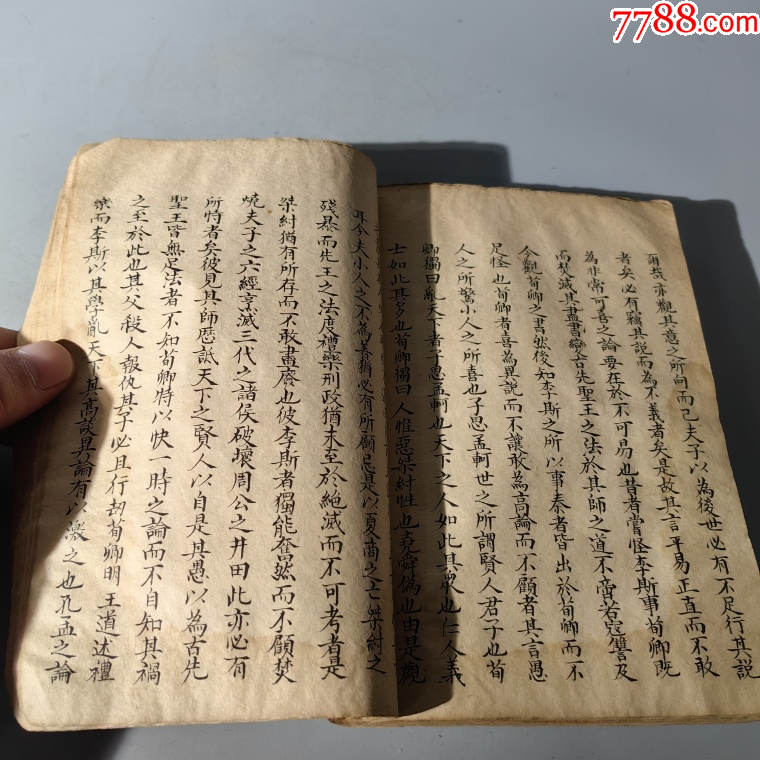 7788.com
爾哉亦觀其意之所向而已夫子以為後世必有不足行其說
者矣必有竊其說而為不義者矣是故其言平易正直而不敢
為非常可喜之論要在於不可易也昔者嘗怪李斯事荀卿既
而焚滅其書盡變古先聖王之法於其師之道不啻若寇讐及
今觀荀卿之書然後知李斯之所以事秦者皆出於荀卿而不
足怪也荀卿者喜為異說而不讓敢為高論而不顧者其言愚
人之所驚小人之所喜也子思孟軻世之所謂賢人君子也荀
卿獨曰亂天下者子思孟軻也天下之人如此其衆也仁人義
士如此其多也荀卿獨曰人性惡桀紂性也堯舜偽也由是觀
耳今夫小人之不為善猶必有所顧忌是以夏商之亡桀紂之
殘暴而先王之法度禮樂刑政猶未至於絶滅而不可考者是
桀紂猶有所存而不敢盡廢也彼李斯者獨能奮然而不顧焚
燒夫子之六經烹滅三代之諸侯破壞周公之井田此亦必有
所恃者矣彼見其師歷詆天下之賢人以自是其愚以為古先
聖王皆無足法者不知荀卿特以快一時之論而不自知其禍
之至於此也其父殺人報仇其子必且行刼荀卿明王道述禮
樂而李斯以其學亂天下其高談異論有以激之也孔孟之論